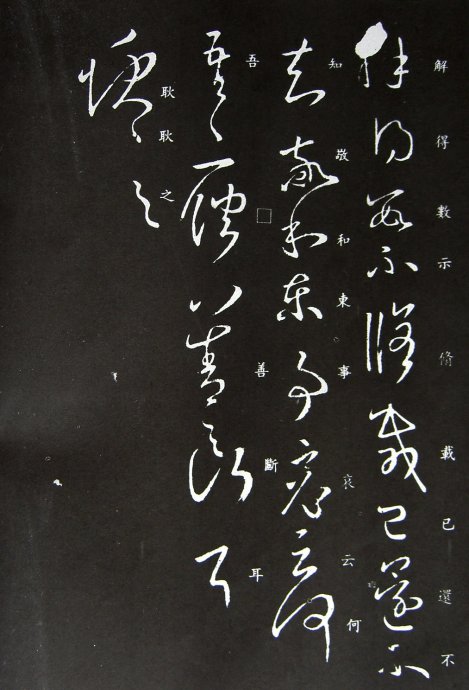 解得數示脩載已還不
知敬和東事哀云何
吾□善斷耳
耿耿之